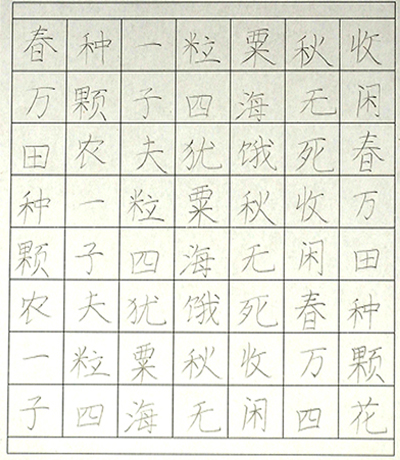 春种一粒粟秋收
万颗子四海无闲
田农夫犹饿死春
种一粒粟秋收万
颗子四海无闲田
农夫犹饿死春种
一粒粟秋收万颗
子四海无闲四花